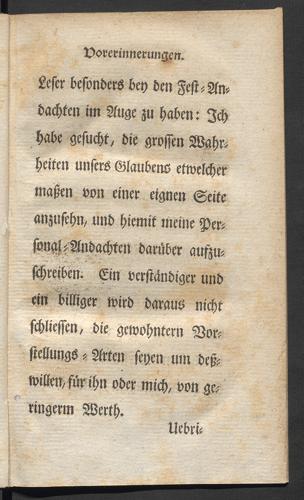 Vorerinnerungen.
Leser besonders bey den Fest-An-
dachten im Auge zu haben: Ich
habe gesucht, die grossen Wahr-
heiten unsers Glaubens etwelcher
maßen von einer eignen Seite
anzusehn, und hiemit meine Per-
sonal-Andachten darüber aufzu-
schreiben. Ein verständiger und
ein billiger wird daraus nicht
schliessen, die gewohntern Vor-
stellungs-Arten seyen um deß-
willen, für ihn oder mich, von ge-
ringerm Werth.
Uebri-